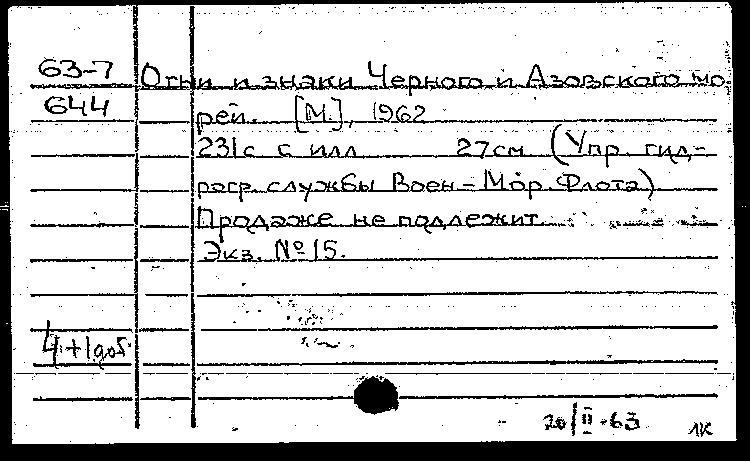 63-7 Огни и знаки Черного и Азовского мо-
644 рей. [М.], 1962
231с с илл. 27см (Упр. гид-
рогр. службы Воен-Мор. Флота)
Продаже не подлежит
Экз. № 15.
4+1доб.
20/II-63
ЛК